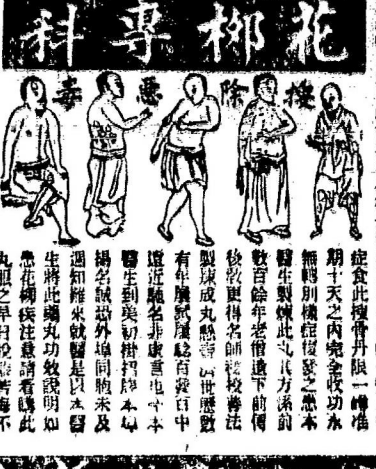 花柳專科
搜除惡毒
症食此搜骨丹限一嗱准
期十天之內完全收功永
無轉別樣症復發之患本
醫生製煉此丸其方係前
數百餘年老僧遺下前傳
後教更得名師
製煉成丸懸壺濟世歷數
有年屢試屢驗百發百中
遠近馳名非虛言也本
醫生到美初掛招牌本埠
揚名誠恐外埠同胞未及
週知難來就醫是以本醫
生將此藥丸功效說明如
患花柳疾注意請看購此
丸服之早日